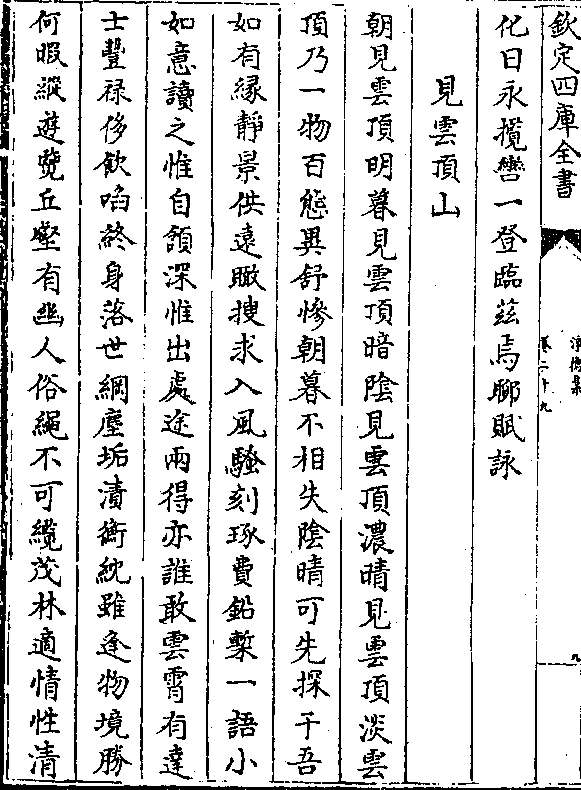 欽定四庫全書
卷二十九
九
化日永攬轡一登臨茲焉聊賦詠
見雲頂山
朝見雲頂明暮見雲頂暗陰見雲頂濃晴見雲頂淡雲
頂乃一物百態異舒慘朝暮不相失陰晴可先探于吾
如有緣靜景供遠瞰搜求入風騷刻琢費鉛槧一語小
如意讀之惟自頷深惟出處途兩得亦誰敢雲霄有達
士豐祿侈飲啗終身落世網塵垢漬銜紞雖逢物境勝
何暇縱遊覽丘壑有幽人俗繩不可纜茂林適情性清